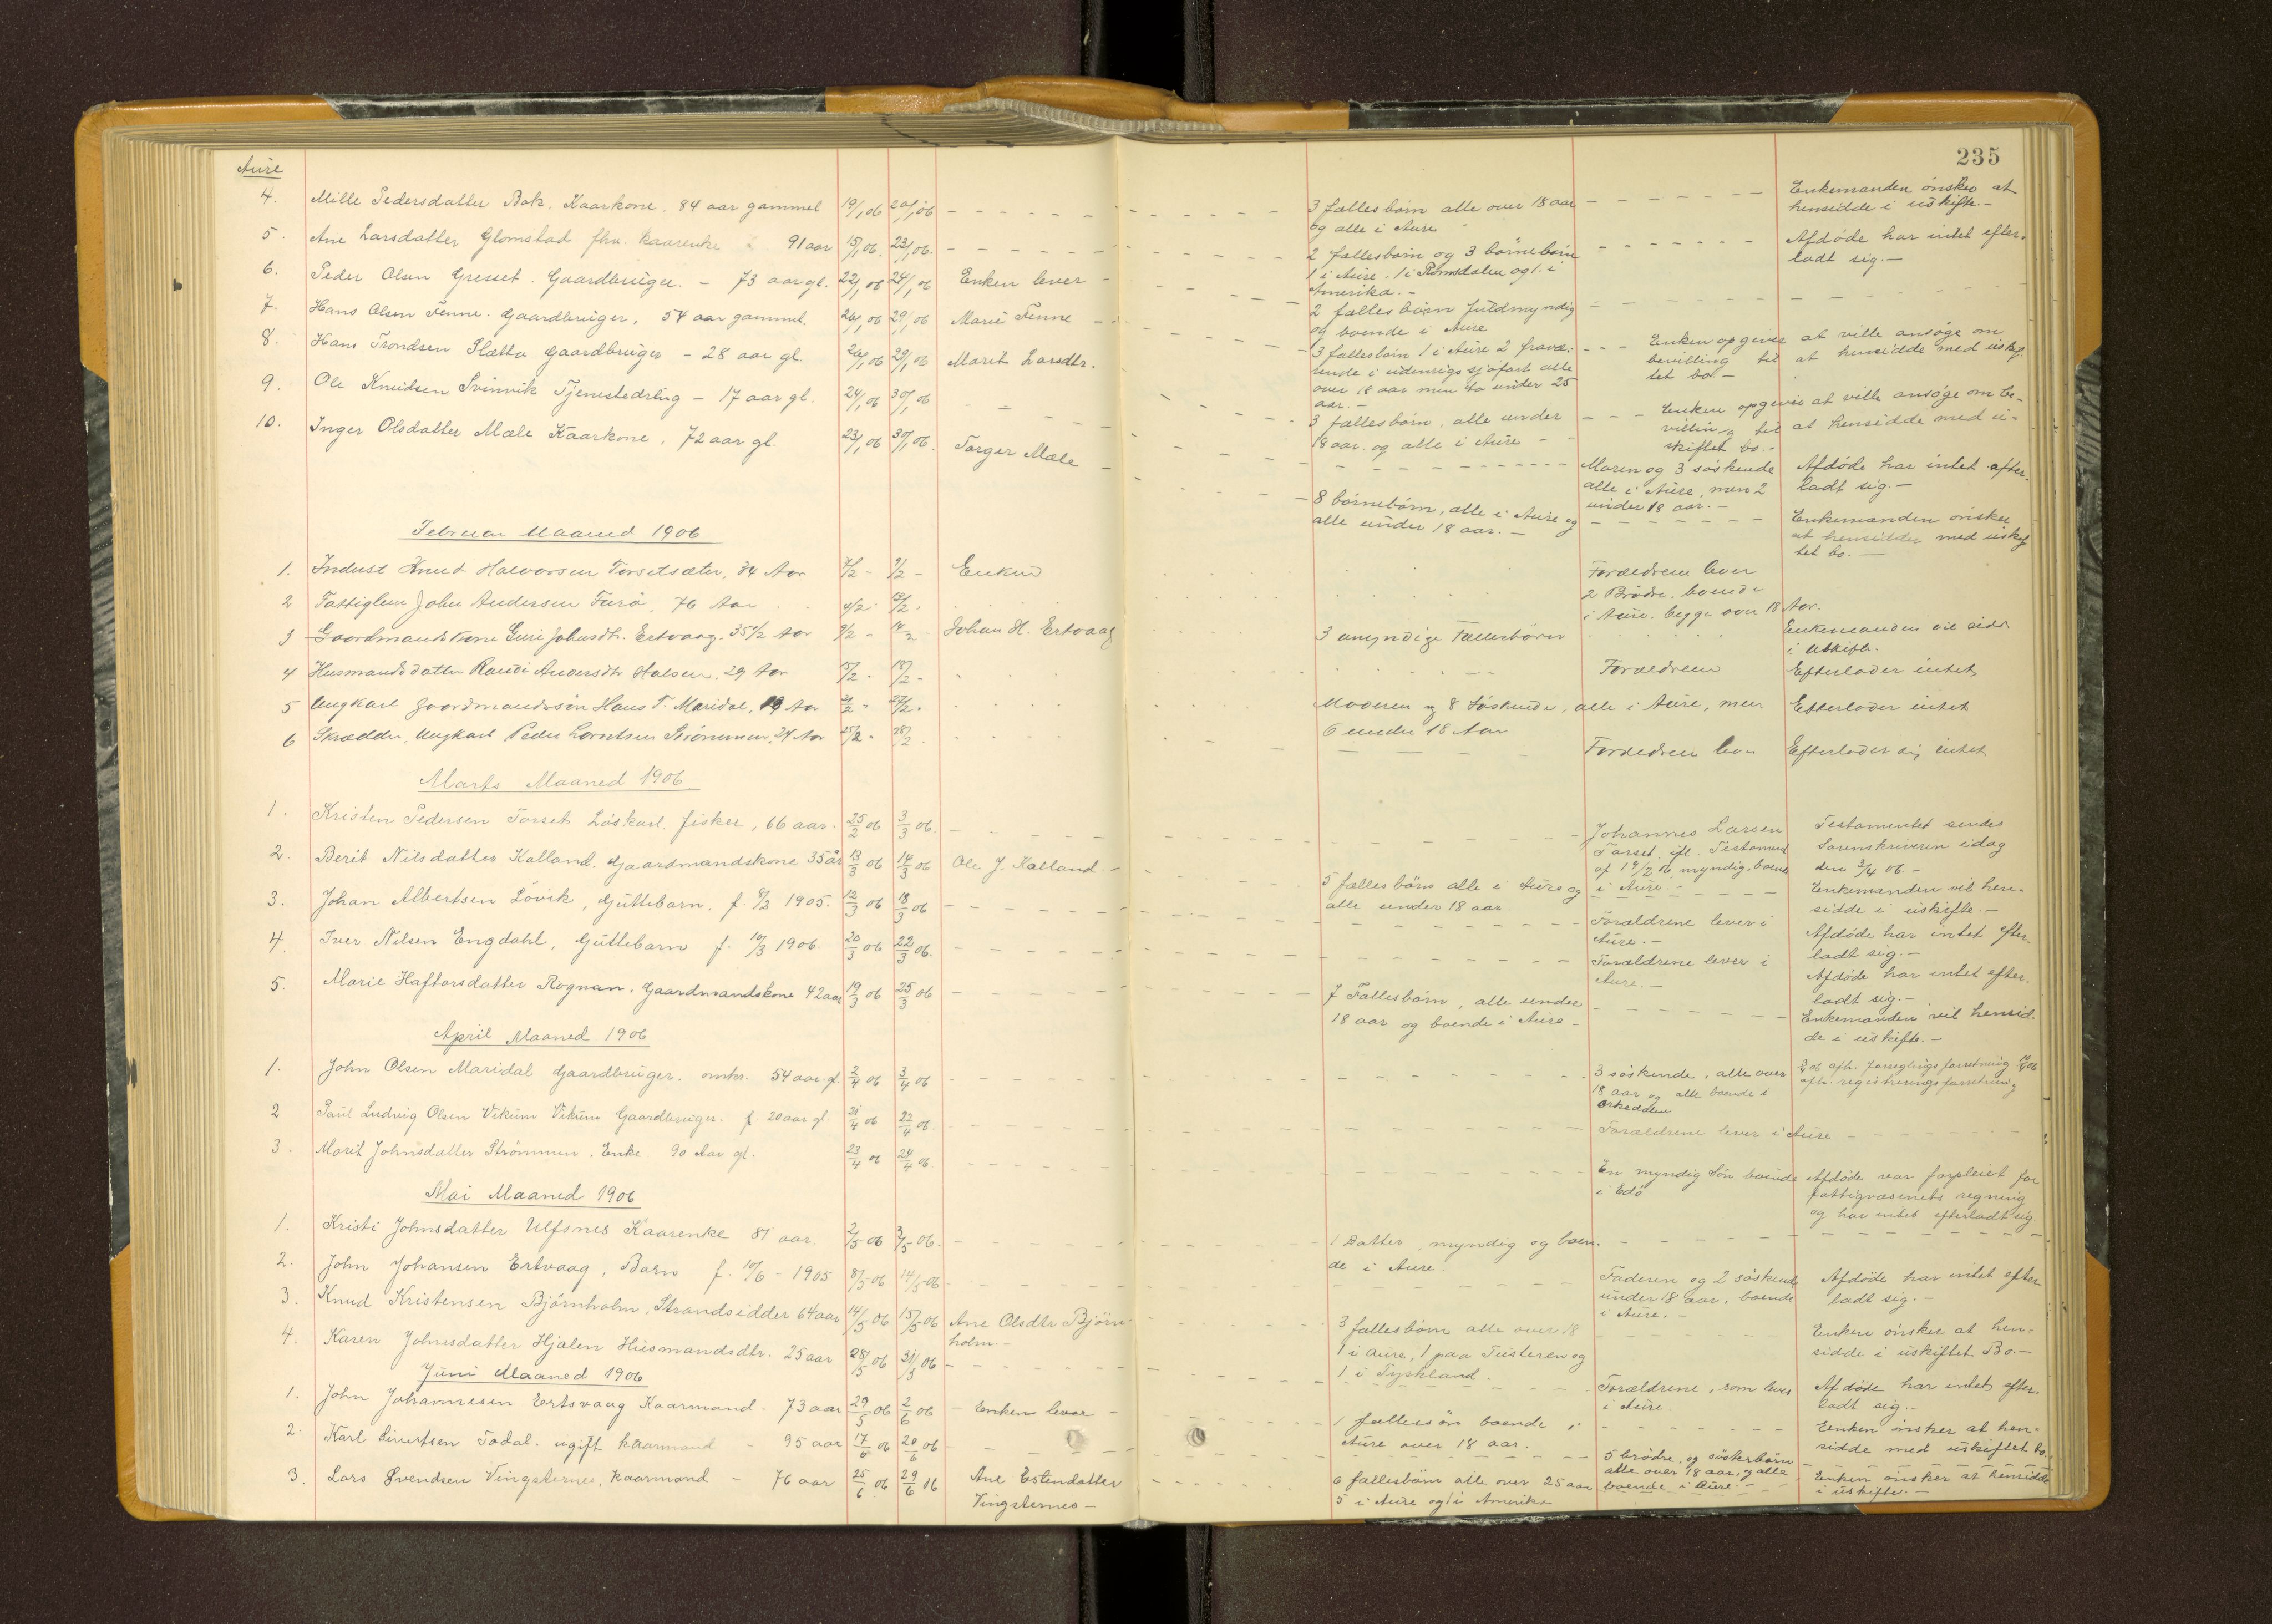 235
Aure
4. Mille Pedersdatter Bak. Kaarkone. 84 aar gammel 19/1 06 20/1 06
3 fællesbörn alle over 18 aar
og alle i Aure
Enkemanden önsker at
hensidde i uskifte.-
5. Ane Larsdatter Glomstad fhv. kaarenke 91 aar 15/1 06. 23/1 06.
2 fællesbörn og 3 börnebörn
1 i Aure. 1 i Romsdalen og 1 i
Amerika.-
Afdöde har intet efter-
ladt sig.-
6. Peder Olsen Gresset. Gaardbruger. - 73 aar gl. 22/1 06 24/1 06 Enken lever -
2 fælles börn fuldmyndig
og boende i Aure
7. Hans Olsen Tenne. Gaardbruger, 54 aar gammel. 26/1 06 29/1 06 Marie Tenne -
3 fællesbörn 1 i Aure 2 fravæ-
rende i udenrigs sjöfart alle
over 18 aar men to under 25
aar.-
Enken opgiver at ville ansöge om
bevilling til at hensidde med uskif-
tet bo.-
8. Hans Trondsen Slætta Gaardbruger - 28 aar gl. 26/1 06 29/1 06 Marit Larsdtr.
3 fællesbörn, alle under
18 aar. og alle i Aure -
Enken opgiver at ville ansöge om be-
villing til at hensidde med u-
skiftet bo.-
9. Ole Knudsen Svinvik Tjenestedreng - 17 aar gl. 24/1 06 30/1 06
Moren og 3 söskende
alle i Aure, men 2
under 18 aar.-
Afdöde har intet efter-
ladt sig.-
10. Inger Olsdatter Mæle Kaarkone. 72 aar gl. 23/1 06 30/1 06. Torger Mæle -
8 börnebörn, alle i Aure og
alle under 18 aar.-
Enkemanden önsker
at hensidde med uskif-
tet bo.-
Februar Maaned 1906
1. Inderst Knud Halvorsen Torsetsæter, 34 Aar 7/2 - 9/2 - Enken
Forældrene lever
2 Brödre, boende
i Aure. begge over 18 Aar.
2 Fattiglem John Andersen Furö, 76 Aar 4/2. 13/2.
3 Gaardmandskone Guri Johnsdtr. Ertvaag. 35 1/2 Aar 9/2 - 14/2 - Johan H. Ertvaag
3 umyndige Fællesbörn
Enkemanden vil sidde
i Uskifte.
4 Husmandsdatter Randi Andersdtr Halsen, 29 Aar 15/2. 18/2 -
Forældrene
Efterlader intet
5 Ungkarl gaardmandssön Hans T. Maridal, 19 Aar 21/2 - 27/2.
Moderen og 8 Söskende, alle i Aure, men
6 under 18 Aar
Efterlader intet
6 Skrædder, Ungkarl Peder Lorntsen Strömmen, 24 Aar 25/2. 28/2.
Forældrene lever
Efterlader sig intet
Marts Maaned 1906.
1. Kristen Pedersen Torset Löskarl. fisker, 66 aar. 25/2 06 3/3 06.
Johannes Larsen
Torset ifl. Testament
af 19/2 06, myndig, boende
i Aure.-
Testamentet sendes
Sorenskriveren idag
den 3/4 06.-
2. Berit Nilsdatter Kalland. Gaardmandskone 35 år 13/3 06 14/3 06 Ole J. Kalland.-
5 fællesbörn alle i Aure og
alle under 18 aar.
Enkemanden vil hen-
sidde i uskifte.-
3. Johan Albertsen Lövik, Guttebarn. f. 8/2 1905. 12/3 06 18/3 06
Forældrene lever i
Aure.-
Afdöde har intet efter-
ladt sig.-
4. Iver Nilsen Engdahl, Guttebarn f. 10/3 1906. 20/3 06 22/3 06.
Forældrene lever i
Aure.-
Afdöde har intet efter-
ladt sig.-
5. Marie Haftorsdatter Rognan. Gaardmandskone 42 aar 19/3 06 25/3 06
7 Fællesbörn, alle under
18 aar og boende i Aure -
Enkemanden vil hensid-
de i uskifte.-
April Maaned 1906
1. John Olsen Maridal Gaardbruger. omkr. 54 aar gl. 2/4 06 3/4 06
3 söskende, alle over
18 aar og alle boende i
Orkedalen
afh. forseglingsforretning
afh. registreringsforretning
2 Paul Ludvig Olsen Vikum Vikum Gaardbruger. f. 20 aar gl. 21/4 06 22/4 06.
Forældrene lever i Aure
3. Marit Johnsdatter Strömmen, Enke. 90 Aar gl. 23/4 06 24/4 06.
En myndig Sön boende
i Edö
Afdöde var forpleiet for
fattigvæsenets regning
og har intet efterladt sig.
Mai Maaned 1906
1. Kristi Johnsdatter Ulfsnes Kaarenke 81 aar. 2/5 06 3/5 06.
1 Datter, myndig og boen-
de i Aure.
2. John Johansen Ertvaag, Barn f. 10/6 - 1905 8/5 06 14/5 06
Faderen og 2 söskende
under 18 aar, boende
i Aure.-
Afdöde har intet efter-
ladt sig.-
3. Knud Kristensen Björnholm, Strandsidder 64 aar 14/5 06 15/5 06 Ane Olsdtr Björn-
holm.-
3 fællesbörn alle over 18
1 i Aure, 1 paa Tusteren og
1 i Tyskland.
Enken önsker at hen-
sidde i uskiftet Bo.-
4. Karen Johnsdatter Hjælen Husmandsdtr. 25 aar 28/5 06 31/5 06
Forældrene, som lever
i Aure.
Afdöde har intet efter-
ladt sig.-
Juni Maaned 1906
1. John Johannesen Ertsvaag Kaarmand. 73 aar 29/5 06 2/6 06 - Enken lever -
1 fællessön boende i
Aure over 18 aar.
Enken önsker at hen-
sidde med uskiftet bo.
2. Karl Sivertsen Todal. ugift kaarmand - 95 aar 17/6 06 20/6 06
5 brödre, og sösterbörn
alle over 18 aar, og alle
boende i Aure.-
3. Lars Svendsen Vingsternes, Kaarmand - 76 aar 25/6 06 29/6 06 Ane Estendatter
Vingsternes -
6 fællesbörn alle over 25 aar
5 i Aure og 1 i Amerika
Enken önsker at hensidde
i uskifte.-